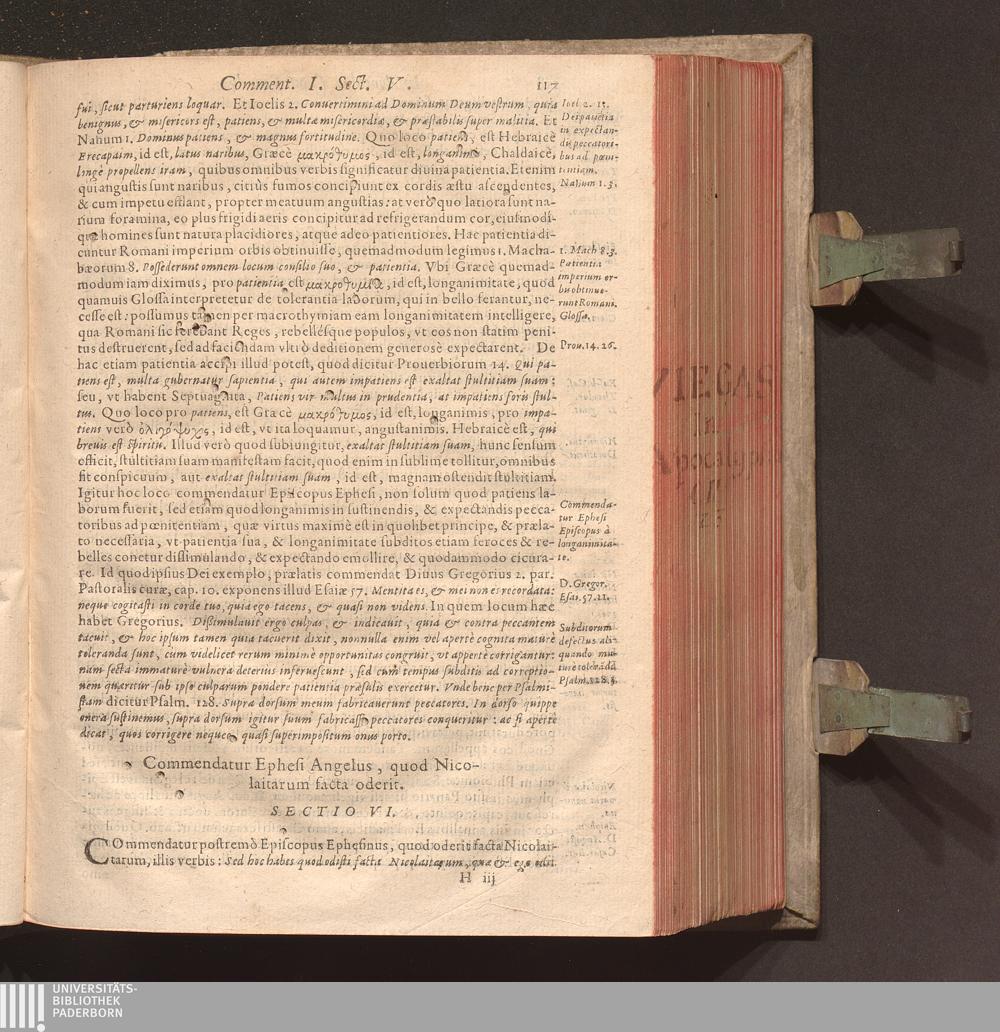 Comment. I. Sect. V. 117
fui, sicut parturiens loquar. Et Ioelis 2. Conuertimini ad Dominum Deum vestrum, quia
benignus, & misericors est, patiens, & multæ misericordiæ, & præstabilis super malitia. Et
Nahum 1. Dominus patiens, & magnus fortitudine. Quo loco patiens, est Hebraicè
Erecapaim, id est, latus naribus, Græcè μακρόθυμος, id est, longanimis, Chaldaicè,
longè propellens iram, quibus omnibus verbis significatur diuina patientia. Etenim
qui angustis sunt naribus, citiùs fumos concipiunt ex cordis æstu ascendentes,
& cum impetu efflant, propter meatuum angustias: at verò quo latiora sunt na-
rium foramina, eo plus frigidi aeris concipitur ad refrigerandum cor, eiusmodi-
que homines sunt natura placidiores, atque adeo patientiores. Hac patientia di-
cuntur Romani imperium orbis obtinuisse, quemadmodum legimus 1. Macha-
bæorum 8. Possederunt omnem locum consilio suo, & patientia. Vbi Græcè quemad-
modum iam diximus, pro patientia est μακροθυμία, id est, longanimitate, quod
quamuis Glossa interpretetur de tolerantia laborum, qui in bello ferantur, ne-
cesse est: possumus tamen per macrothymiam eam longanimitatem intelligere,
qua Romani sic ferebant Reges, rebellésque populos, vt eos non statim peni-
tus destruerent, sed ad faciendam vltrò deditionem generosè expectarent. De
hac etiam patientia accipi illud potest, quod dicitur Prouerbiorum 14. Qui pa-
tiens est, multa gubernatur sapientia, qui autem impatiens est exaltat stultitiam suam:
seu, vt habent Septuaginta, Patiens vir multus in prudentia, at impatiens foris stul-
tus. Quo loco pro patiens, est Græcè μακρόθυμος, id est, longanimis, pro impa-
tiens verò ὀλιγόψυχς, id est, vt ita loquamur, angustanimis. Hebraicè est, qui
breuis est spiritu. Illud verò quod subiungitur, exaltat stultitiam suam, hunc sensum
efficit, stultitiam suam manifestam facit, quod enim in sublime tollitur, omnibus
fit conspicuum, aut exaltat stultitiam suam, id est, magnam ostendit stultitiam.
Igitur hoc loco commendatur Episcopus Ephesi, non solum quod patiens la-
borum fuerit, sed etiam quod longanimis in sustinendis, & expectandis pecca-
toribus ad pœnitentiam, quæ virtus maximè est in quolibet principe, & præla-
to necessaria, vt patientia sua, & longanimitate subditos etiam feroces & re-
belles conetur dissimulando, & expectando emollire, & quodammodo cicura-
re. Id quod ipsius Dei exemplo, prælatis commendat Diuus Gregorius 2. par.
Pastoralis curæ, cap. 10. exponens illud Esaiæ 57. Mentita es, & mei non es recordata:
neque cogitasti in corde tuo, quia ego tacens, & quasi non videns. In quem locum hæc
habet Gregorius. Dissimulauit ergo culpas, & indicauit, quia & contra peccantem
tacuit, & hoc ipsum tamen quia tacuerit dixit, nonnulla enim vel apertè cognita maturè
toleranda sunt, cum videlicet rerum minimè opportunitas congruit, vt appertè corrigantur:
nam secta immaturè vulnera deteriùs inferuescunt, sed cum tempus subditis ad correptio-
nem quæritur sub ipso culparum pondere patientia præsulis exercetur. Vnde bene per Psalmi-
stam dicitur Psalm. 128. Supra dorsum meum fabricauerunt peccatores. In dorso quippe
onera sustinemus, supra dorsum igitur suum fabricasse peccatores conqueritur: ac si apertè
dicat, quos corrigere nequeo, quasi superimpositum onus porto.
Commendatur Ephesi Angelus, quod Nico-
laitarum facta oderit.
SECTIO VI.
COmmendatur postremò Episcopus Ephesinus, quod oderit facta Nicolai-
tarum, illis verbis: Sed hoc habes quod odisti facta Nicolaitarum, quæ & ego odi.
H iij
Ioel 2. 13.
Dei patientia
in expectan-
dis peccatori-
bus ad pœni-
tentiam.
Nahum 1. 3.
1. Mach 8. 3.
Patientia
imperium or-
bis obtinue-
runt Romani.
Glossa.
Prou. 14. 26.
Commenda-
tur Ephesi
Episcopus à
longanimita-
te.
D. Gregor.
Esai. 57. 11.
Subditorum
defectus ali-
quando ma-
turè tolerādi.
Psalm. 128. 3.
VIEGAS
In
Apocalypsin
UNIVERSITÄTS-
BIBLIOTHEK
PADERBORN